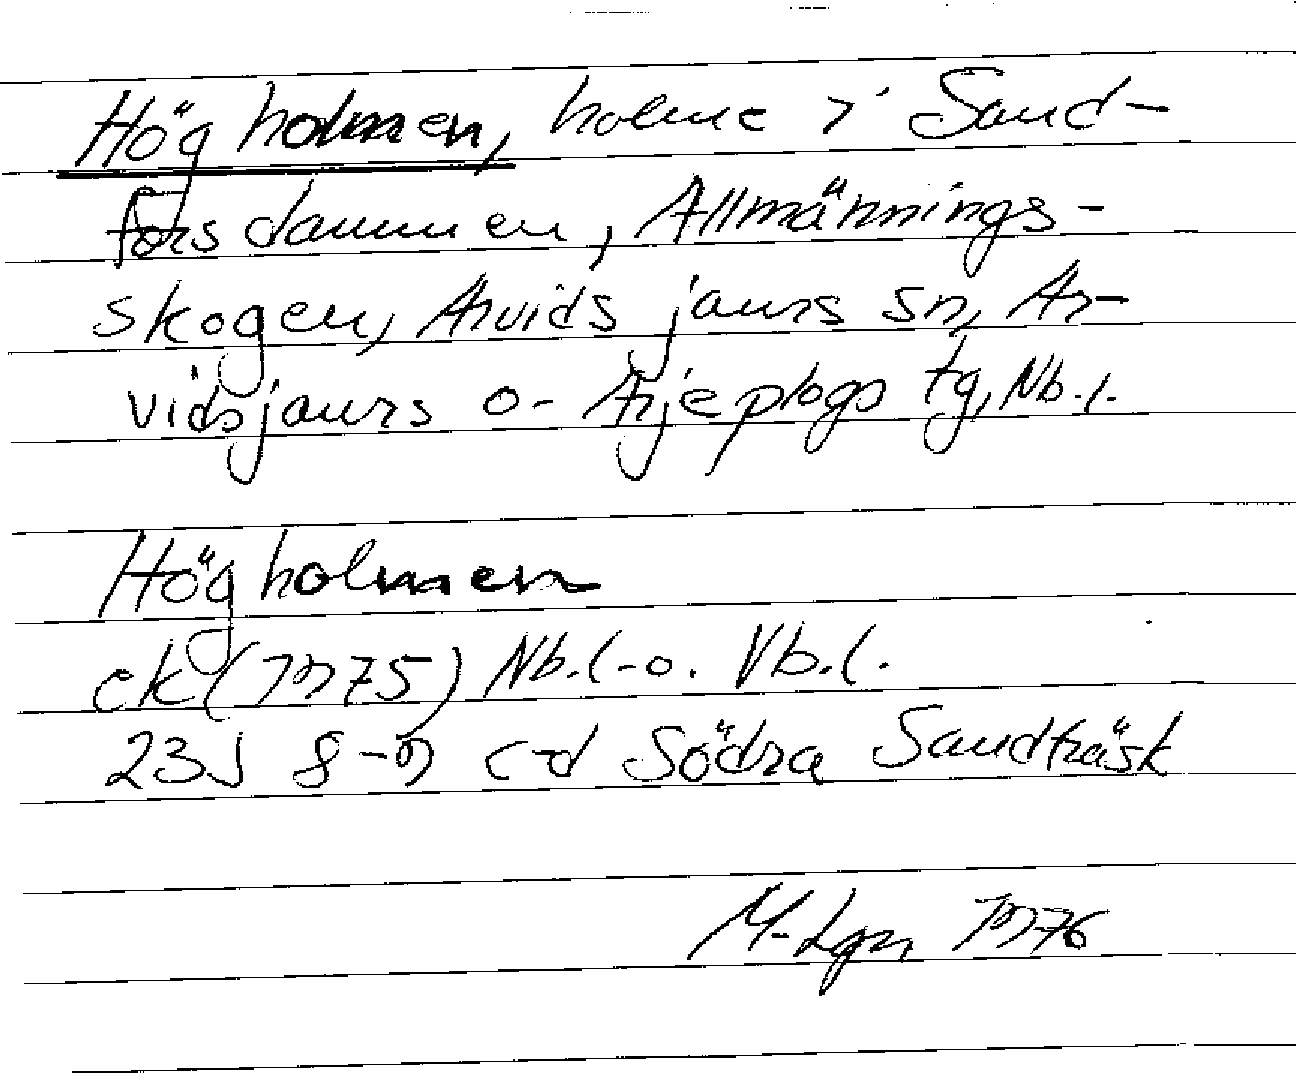 Högholmen, holme i Sand-
forsdammen, Allmännings-
skogen, Arvidsjaurs sn, Ar-
vidsjaurs o. Arjeplogs tg, Nb.l.
Högholmen
ek (1975) Nb.l. o. Vb.l.
23J 8-9 c-d Södra Sandträsk
M. Lgn 1976